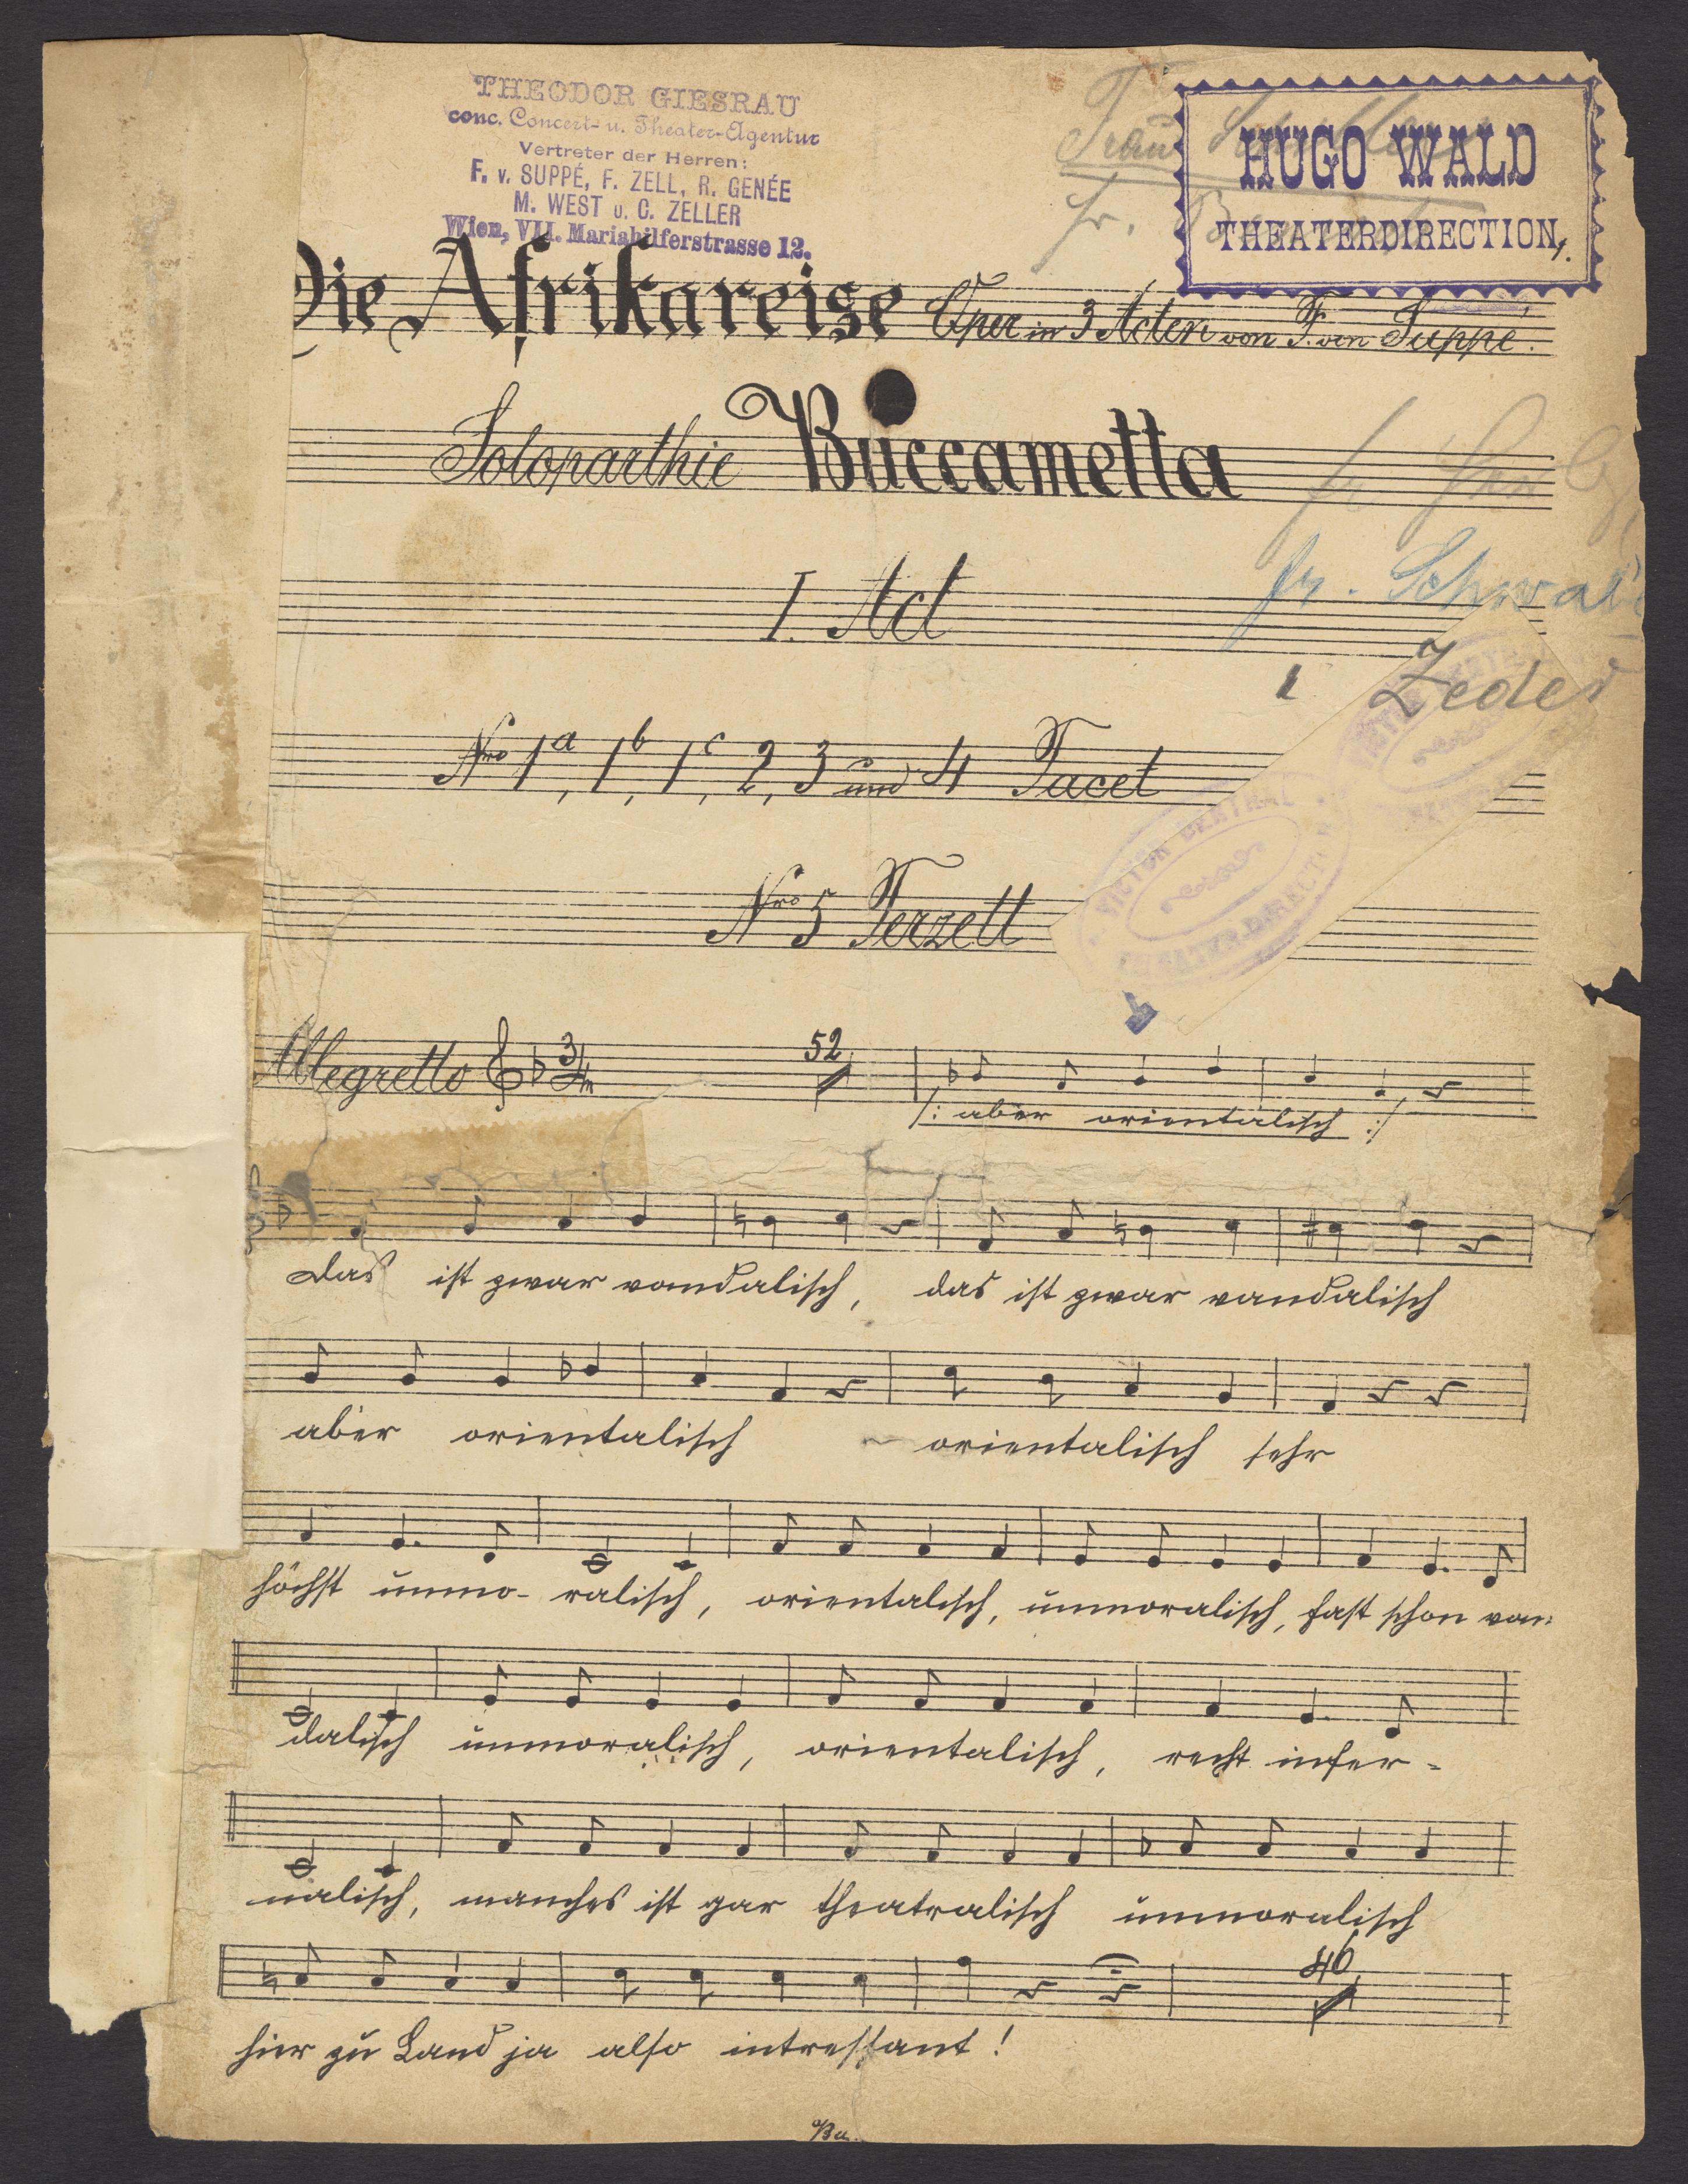 THEODOR GIESRAU
conc. Concert- u. Theater-Agentur
Vertreter der Herren:
F. v. SUPPÉ, F. ZELL, R. GENÉE
M. WEST u. C. ZELLER
Wien, VII. Mariahilferstrasse 12.
Frau
fr.
HUGO WALD
THEATERDIRECTION
1.
Die Afrikareise Oper in 3 Acten von F. von Suppé.
Soloparthie Buccametta
fr
I. Act
fr. Schwal
Zeder
Nro 1a, 1b, 1c, 2, 3 und 4 Tacet
Nro 5 Terzett
VICTOR BERTHAL
THEATER-DIRECTION
Allegretto 3/4 52
/: aber orientalisch :/
Das ist zwar vandalisch, das ist zwar vandalisch
aber orientalisch orientalisch sehr
höchst unmo- ralisch, orientalisch, unmoralisch, fast schon van-
dalisch unmoralisch, orientalisch, recht infer-
nalisch, manches ist gar theatralisch unmoralisch
46
hier zu Land ja also intressant!